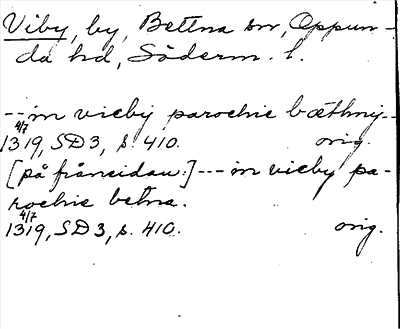 Viby, by, Bettna sn, Oppun-
da hd, Söderm. l.
--in vieby parochie bæthny--
4/7
1319, SD 3, s. 410. orig.
[på frånsidan:] --- in vieby pa-
rochie betna.
4/7
1319, SD 3, s. 410. orig.